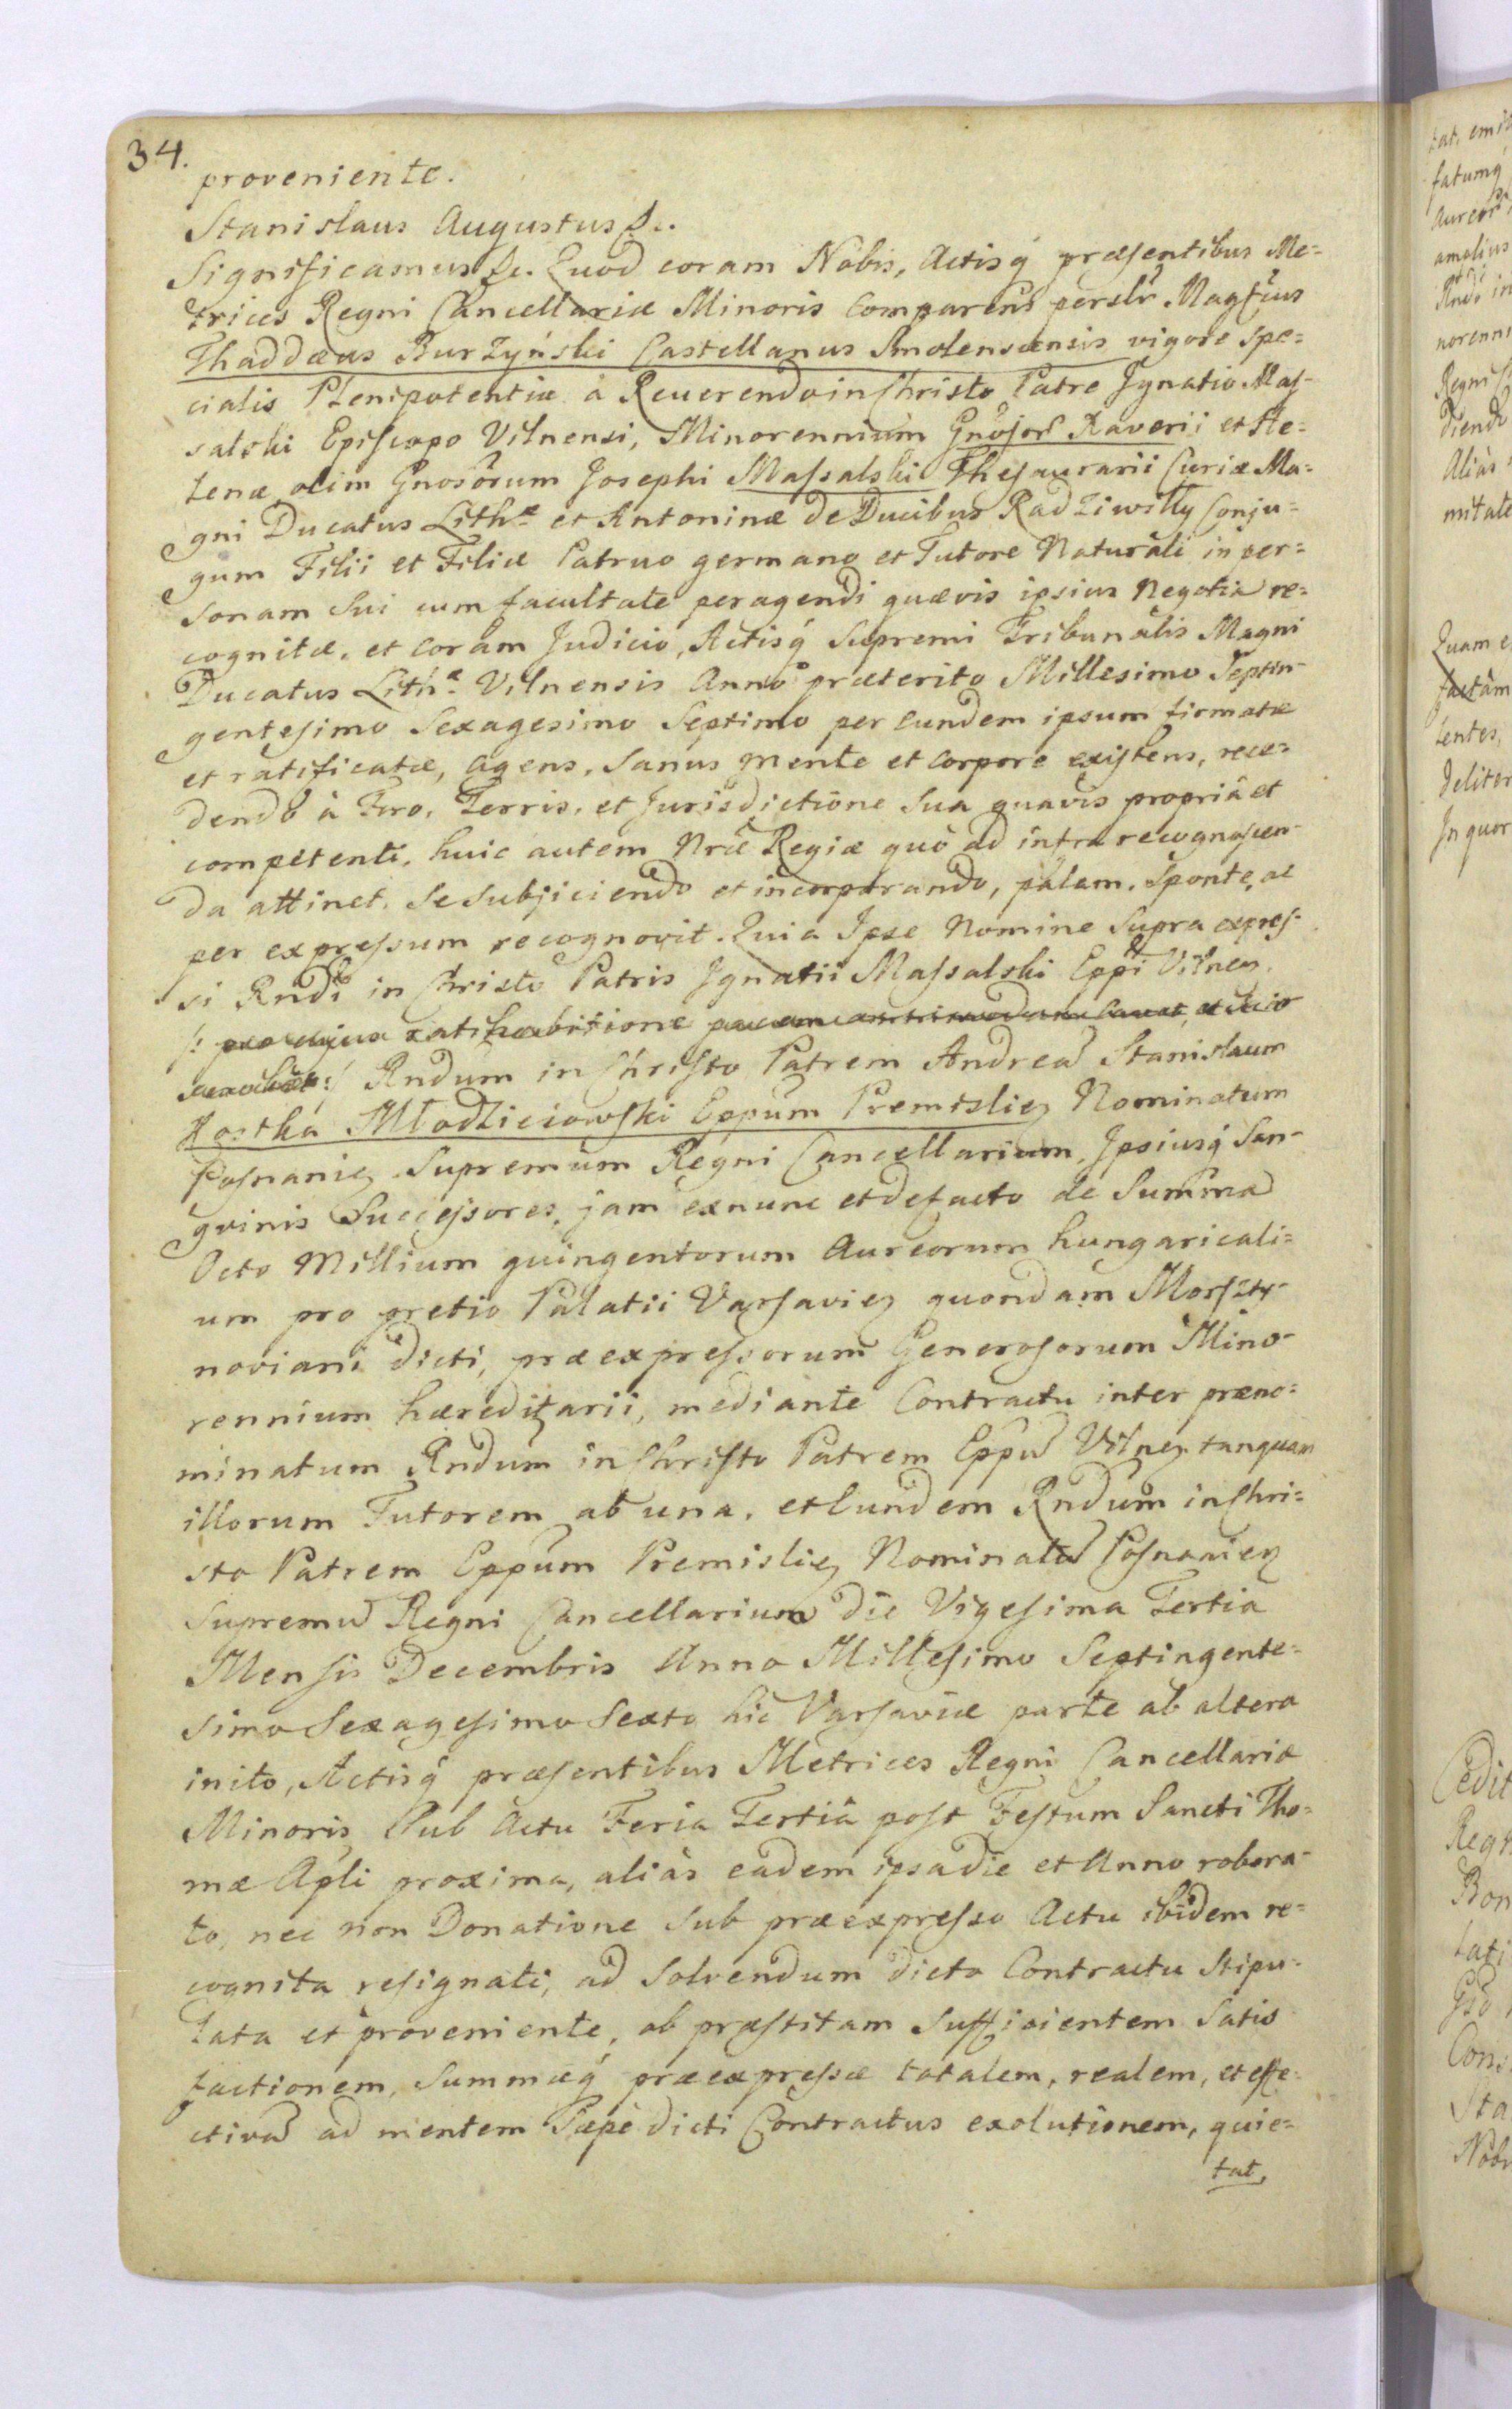 34.
proveniente.
Stanislaus Augustus &c.
Significamus &c. Quod coram Nobis, Actisq́ præsentibus Me=
trices Regni Cancellariæ Minoris Comparens perslr̃ Magfĩcus
Thaddæus Burzyński Castellanus Smolenscensis vigore spe=
cialis Plenipotentiæ à Reuerendo in Christo Patre Ignatio Mas-
salski Episcopo Vilnensi, Minorennium Gnõsor̃ Xaverii et He=
lenæ olim Gnosõrum Josephi Massalski Thesaurarii Curiæ Ma=
gni Ducatus Lith.æ et Antoninæ de Ducibus Radziwiłły Conju=
gum Filii et Filiæ Patruo germano et Tutore Naturali in per=
sonam sui cum facultate peragendi quævis ipsius Negotia re=
cognitæ, et coram Judicio, Actisq́ Supremi Tribunalis Magni
Ducatus Lith.æ Vilnensis Anno præterito Millesimo Septin-
gentesimo Sexagesimo Septimo per eundem ipsum firmatæ
et ratificatæ, agens, Sanus mente et corpore existens, rece=
dendo à Foro, Terris, et Jurisdictione Sua quavis propriâ et
competenti, huic autem Nrae Regiæ quò ad infra recognoscen-
da attinet, se subjiciendo et incorporando, palam, Sponte, ac
per expressum recognovit. Quia Ipse Nomine Supra expres-
si Rndi in Christo Patris Ignatii Massalski Eppi Vilnen.
/: pro cujus ratihabitione
:/ Rndum in Christo Patrem Andream Stanislaum
Kostka Młodzieiowski Eppum Premislien Nominatum
Posnanien Supremum Regni Cancellarium, Ipsiusq́ San-
gvinis Successores, jam exnunc et defacto de Summa
Octo Millium quingentorum Aureorum hungaricali=
um pro pretio Palatii Varsavien quondam Morszty-
noviani dicti, præexpressorum Generosorum Mino-
rennium hæreditarii, mediante Contractu inter præno=
minatum Rndum in Christo Patrem Eppum Vilnen tanquam
illorum Tutorem ab una, et Eundem Rndum in Chri=
sto Patrem Eppum Premislien Nominatum Posnanien
Supremum Regni Cancellarium die Vigesima Tertia
Mensis Decembris Anno Millesimo Septingente=
simo Sexagesimo Sexto hic Varsaviæ parte ab altera
inito, Actisq́ præsentibus Metrices Regni Cancellariæ
Minoris Sub Actu Feria Tertiâ post Festum Sancti Tho=
mæ Apli proxima, aliàs eadem ipsa die et Anno robora-
to, nec non Donatione sub præexpresso Actu ibidem re=
cognita resignati, ad solvendum dicto Contractu Stipu-
lata et proveniente, ob præstitam Sufficientem Satis
factionem, Summæq́ præexpressæ totalem, realem, et effe=
ctivam ad mentem Sæpè dicti Contractus exolutionem, quie=
tat,